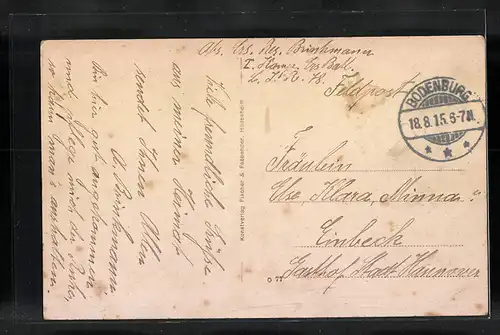 Abs. Ers. Res. Brinkmann
I. Komp. Ers. Batl.
L. I. R. 78.
Feldpost
BODENBURG
18.8.15.6-7N.
Fräulein
Else, Klara, Minna
Einbeck
Gasthof Stadt Hannover
Kunstverlag Fischer & Fassbender, Hildesheim
Viele freundliche Grüße
aus meiner Heimat
sendet Ihnen Allen
A. Brinkmann
Bin hier gut angekommen
und pflege mich der Ruhe,
so kann man's aushalten.